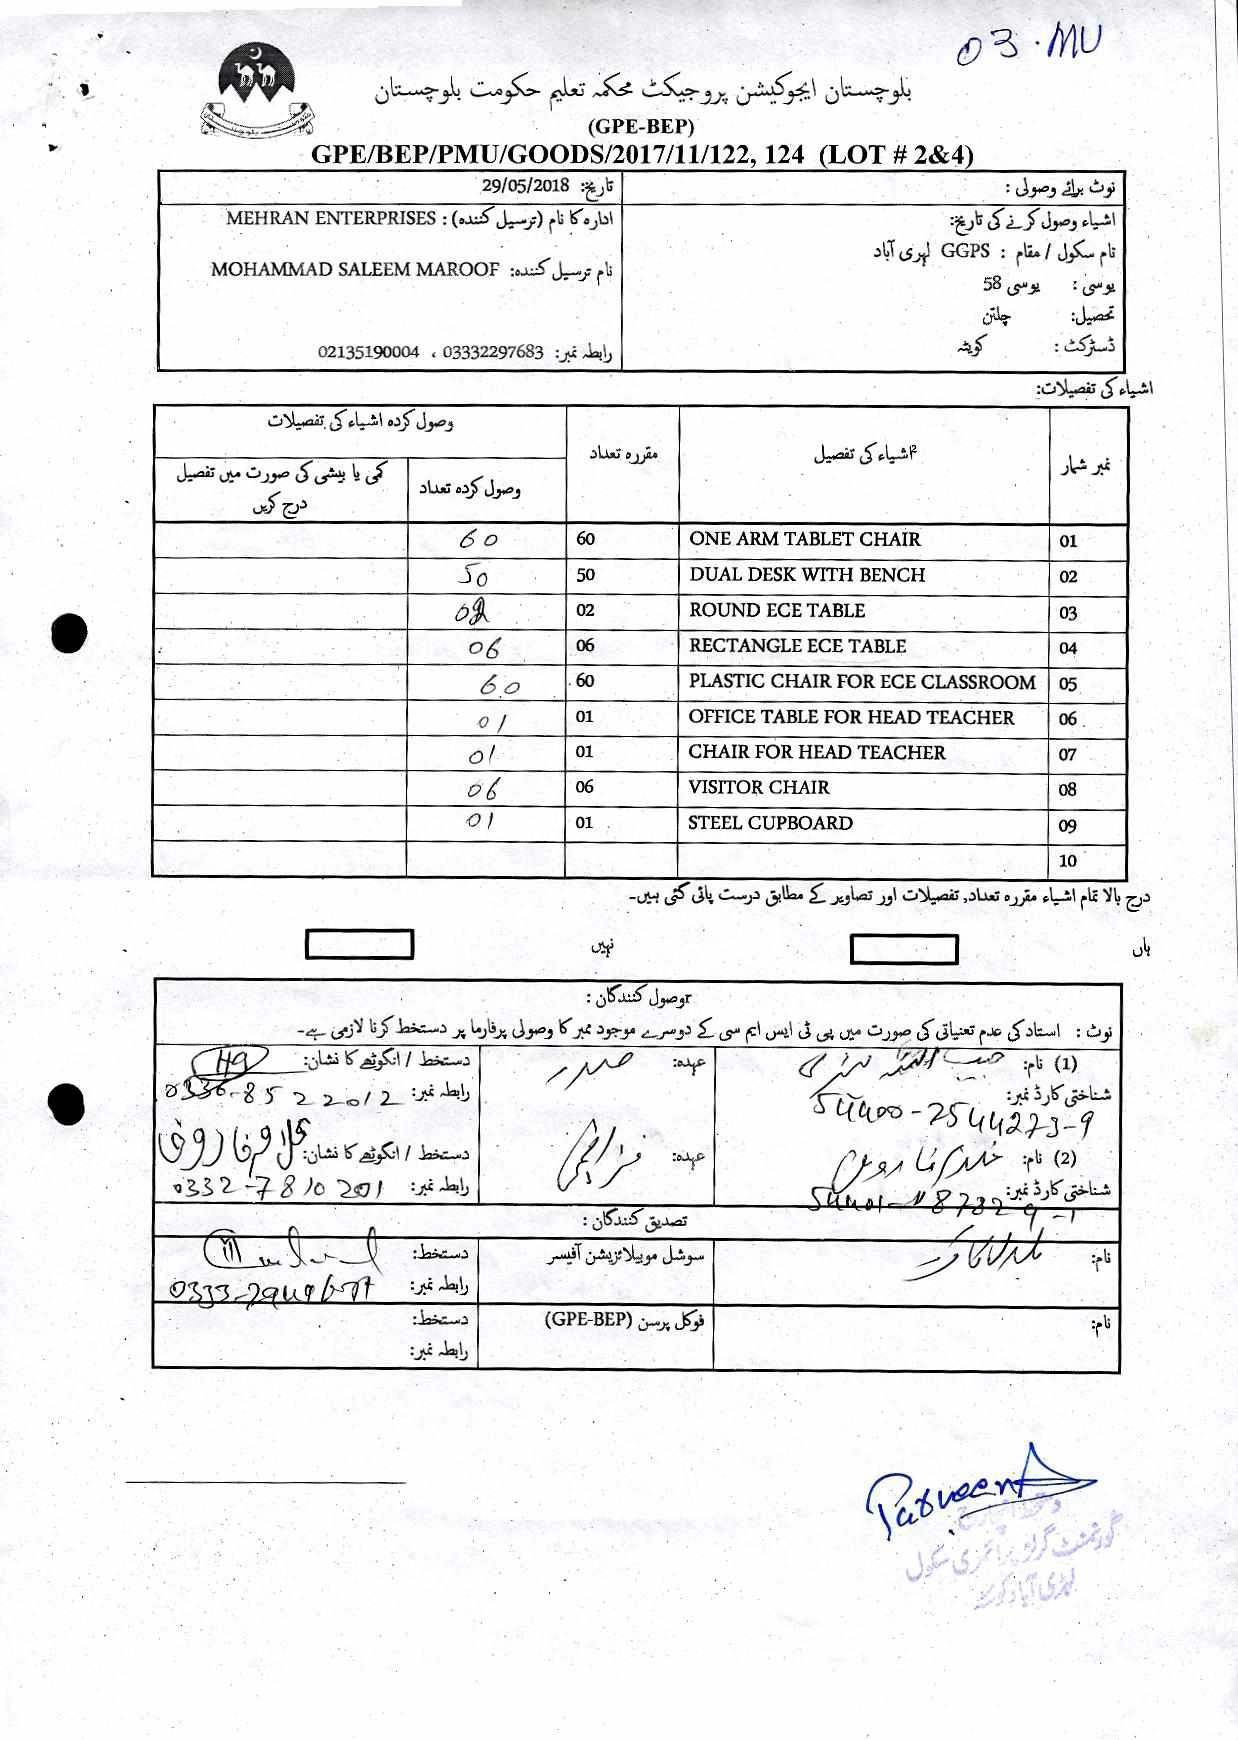 03.MU
بلوچستان ایجوکیشن پروجیکٹ محکمہ تعلیم حکومت بلوچستان
(GPE-BEP)
GPE/BEP/PMU/GOODS/2017/11/122, 124 (LOT # 2&4)
نوٹ برائے وصولی :
تاریخ: 29/05/2018
اشیاء وصول کرنے کی تاریخ:
نام سکول / مقام : GGPS لہڑی آباد
یوسی : یوسی 58
تحصیل: چلتن
ڈسٹرکٹ : کوئٹہ
ادارہ کا نام (ترسیل کنندہ) : MEHRAN ENTERPRISES
نام ترسیل کنندہ: MOHAMMAD SALEEM MAROOF
رابطہ نمبر: 03332297683 ، 02135190004
اشیاء کی تفصیلات:
نمبر شمار اشیاء کی تفصیل مقررہ تعداد وصول کردہ اشیاء کی تفصیلات
وصول کردہ تعداد کمی یا بیشی کی صورت میں تفصیل درج کریں
01 ONE ARM TABLET CHAIR 60 60
02 DUAL DESK WITH BENCH 50 50
03 ROUND ECE TABLE 02 02
04 RECTANGLE ECE TABLE 06 06
05 PLASTIC CHAIR FOR ECE CLASSROOM 60 60
06 OFFICE TABLE FOR HEAD TEACHER 01 01
07 CHAIR FOR HEAD TEACHER 01 01
08 VISITOR CHAIR 06 06
09 STEEL CUPBOARD 01 01
10
درج بالا تمام اشیاء مقررہ تعداد, تفصیلات اور تصاویر کے مطابق درست پائی گئی ہیں۔
ہاں نہیں
وصول کنندگان :
نوٹ : استاد کی عدم تعنیاتی کی صورت میں پی ٹی ایس ایم سی کے دوسرے موجود ممبر کا وصولی پرفارما پر دستخط کرنا لازمی ہے۔
(1) نام: عہدہ: صدر دستخط / انگوٹھے کا نشان:
شناختی کارڈ نمبر: 54400-2544273-9 رابطہ نمبر: 0336-8522012
(2) نام: عہدہ: دستخط / انگوٹھے کا نشان:
شناختی کارڈ نمبر: رابطہ نمبر: 0332-7810201
تصدیق کنندگان :
نام: سوشل موبیلائزیشن آفیسر دستخط:
رابطہ نمبر:
نام: فوکل پرسن (GPE-BEP) دستخط:
رابطہ نمبر:
Parveen
گورنمنٹ گرلز پرائمری سکول
لہڑی آباد کوئٹہ